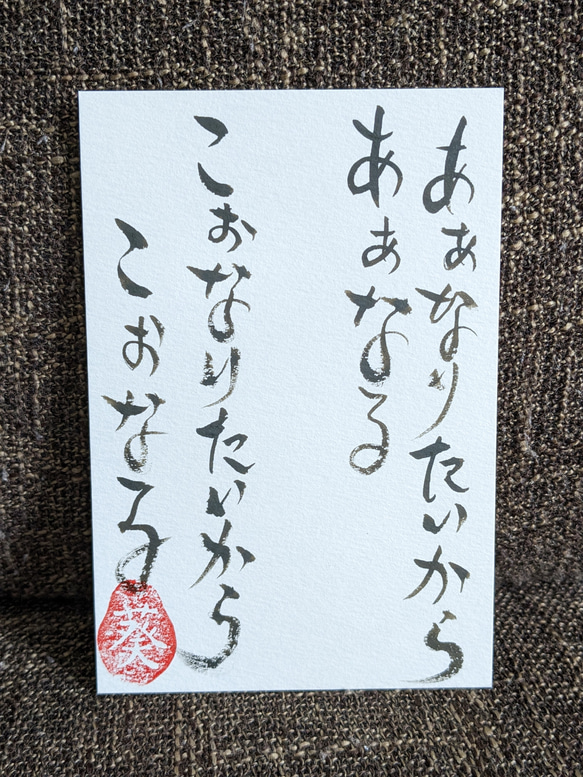 あぁなりたいから
あぁなる
こぉなりたいから
こぉなる
葵